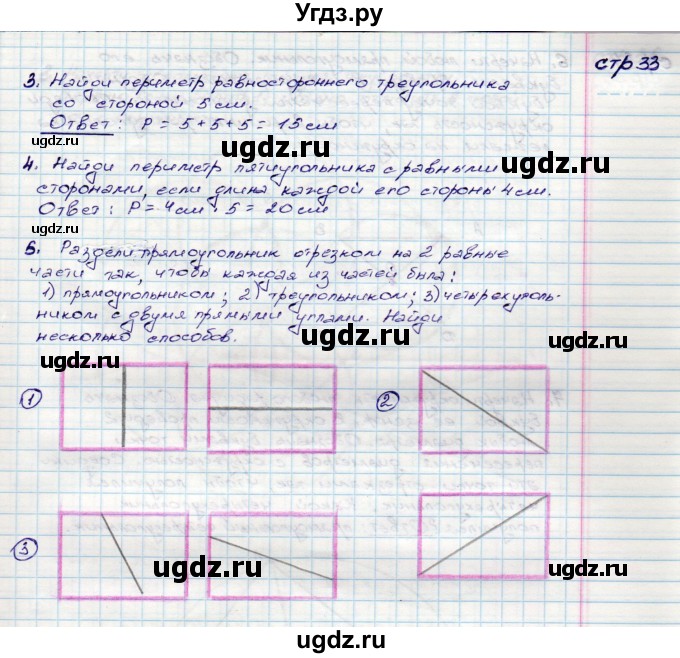 Угдз.ру
стр 33
3. Найди периметр равностороннего треугольника
со стороной 5 см.
Ответ: P = 5 + 5 + 5 = 15 см
ugdz.ru
ugdz.ru
4. Найди периметр пятиугольника с равными
сторонами, если длина каждой его стороны 4 см.
ugdz.ru
Ответ: P = 4 см · 5 = 20 см
5. Раздели прямоугольник отрезком на 2 равные
части так, чтобы каждая из частей была:
ugdz.ru
1) прямоугольником; 2) треугольником; 3) четырехуголь-
ником с двумя прямыми углами. Найди
несколько способов.
ugdz.ru
ugdz.ru
1
2
ugdz.ru
ugdz.ru
3
ugdz.ru
ugdz.ru
ugdz.ru